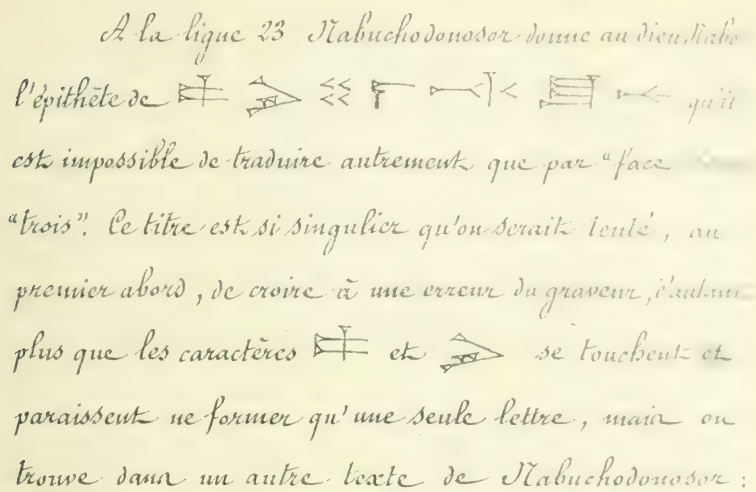 A la ligne 23 Nabuchodonosor donne au dieu
l'épithète de qu'il
est impossible de traduire autrement que par "face
"trois". Ce titre est si singulier qu'on serait tenté, au
premier abord, de croire à une erreur du graveur, d'autant
plus que les caractères et se touchent et
paraissent ne former qu'une seule lettre, mais on
trouve dans un autre texte de Nabuchodonosor :